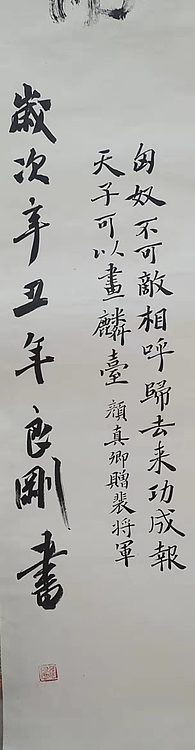 匈奴不可敵相呼歸去来功成報
天子可以畫麟臺顔真卿贈裴将軍
歲次辛丑年良剛書